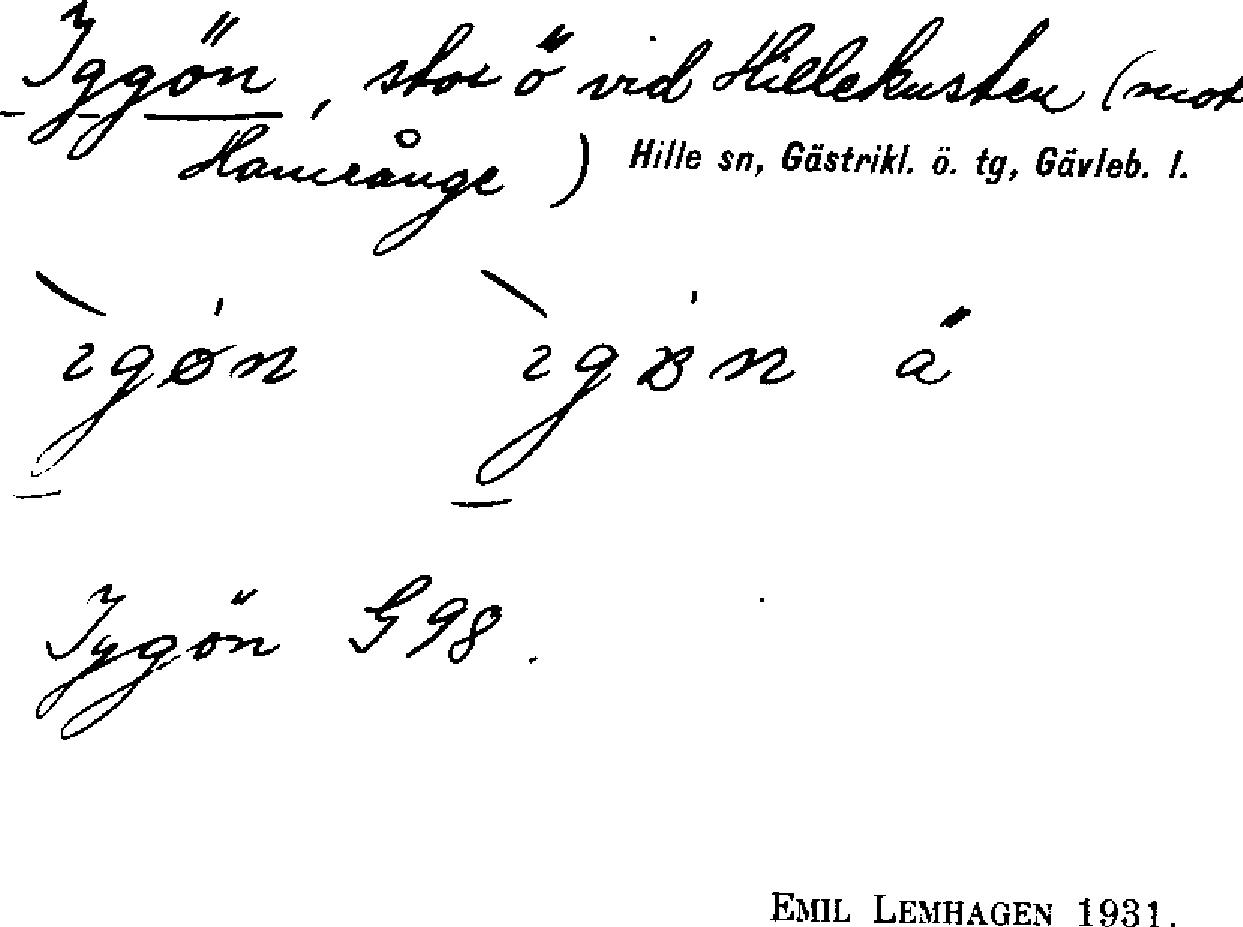 Iggön, stor ö vid Hillekusten (mot
Hamrånge) Hille sn, Gästrikl. ö. tg, Gävleb. l.
ìgø̀n ìgɞ̀n ä
Iggön G98.
EMIL LEMHAGEN 1931.